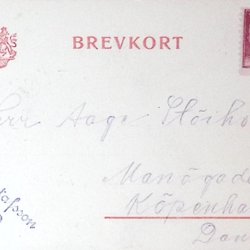 BREVKORT
Herr Aage Flöiho
Manögade
Köpenha
Dan
afsson